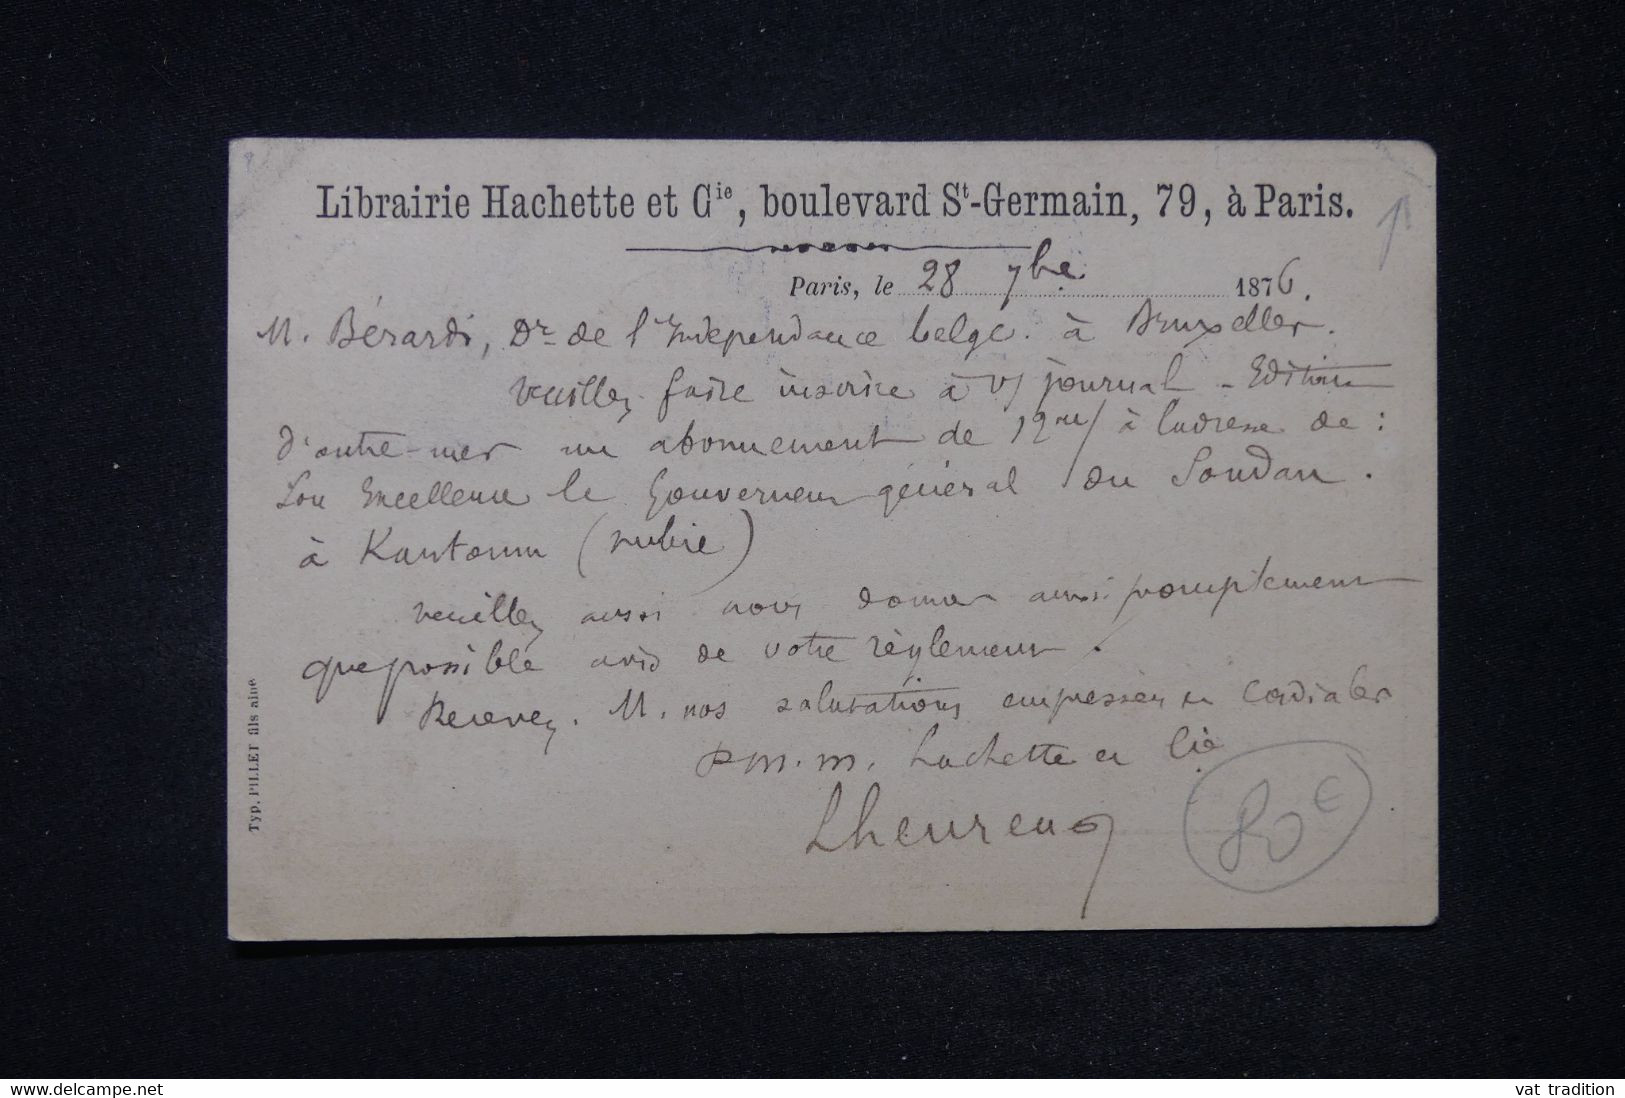 Librairie Hachette et Cie, boulevard St-Germain, 79, à Paris.
Paris, le 28 7bre 1876.
M. Bérardi, Dr de l'Indépendance belge. à Bruxelles.
Veuillez faire inscrire à vs journal - Edition
d'outre-mer un abonnement de 12 m/ à l'adresse de :
Son Excellence le Gouverneur général du Soudan.
à Kartoum (nubie)
Veuillez aussi nous donner aussi promptement
que possible avis de votre règlement.
Recevez. M. nos salutations empressées et cordiales
P M. M. hachette et Cie
Lheureux
80 €
Typ. PILLET fils aîné
www.delcampe.net
vat tradition